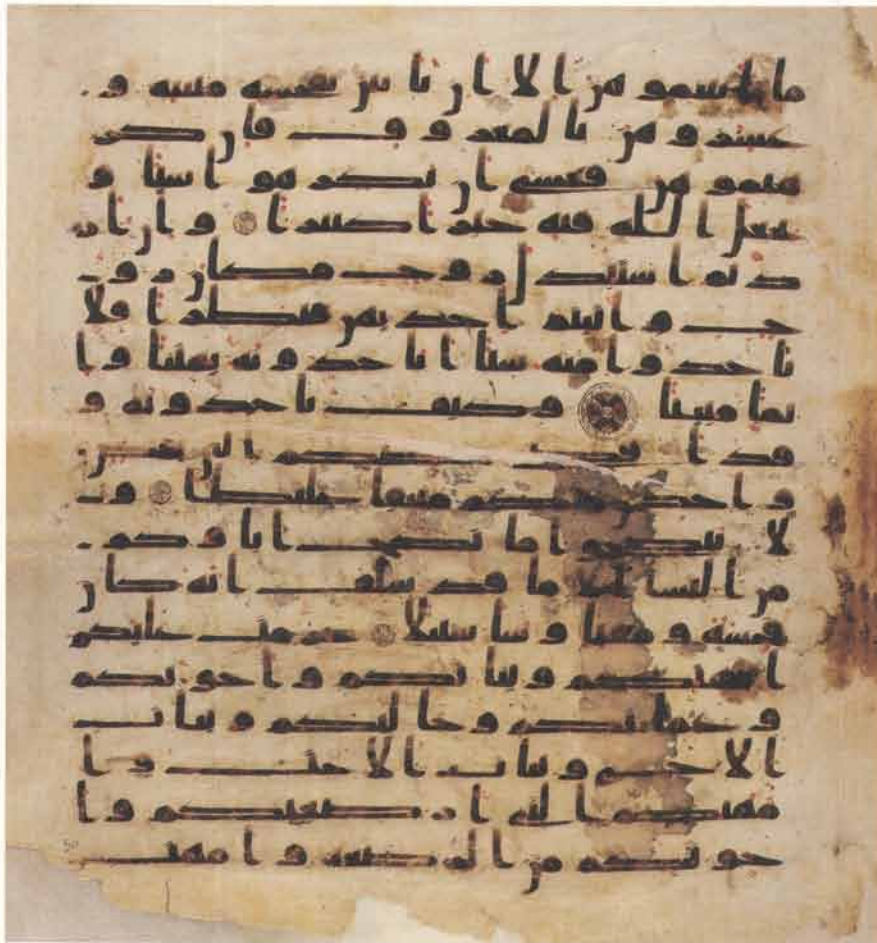 ما اتيتموهن الا ان ياتين بفحشة مبينة و
عشروهن بالمعروف فان كر
هتموهن فعسى ان تكرهوا شيا و
يجعل الله فيه خيرا كثيرا وان ار
دتم استبدال زوج مكان زو
ج واتيتم احديهن قنطارا فلا
تاخذوا منه شيا اتاخذونه بهتنا وا
ثما مبينا وكيف تاخذونه و
قد افضى بعضكم الى بعض
واخذن منكم ميثقا غليظا و
لا تنكحوا ما نكح اباوكم
من النسا الا ما قد سلف انه كان
فحشة ومقتا وسا سبيلا حرمت عليكم
امهتكم وبناتكم واخوتكم
وعماتكم وخالتكم وبنات
الاخ وبنات الاخت وا
مهتكم التي ارضعنكم وا
خوتكم من الرضعة وامهت
50